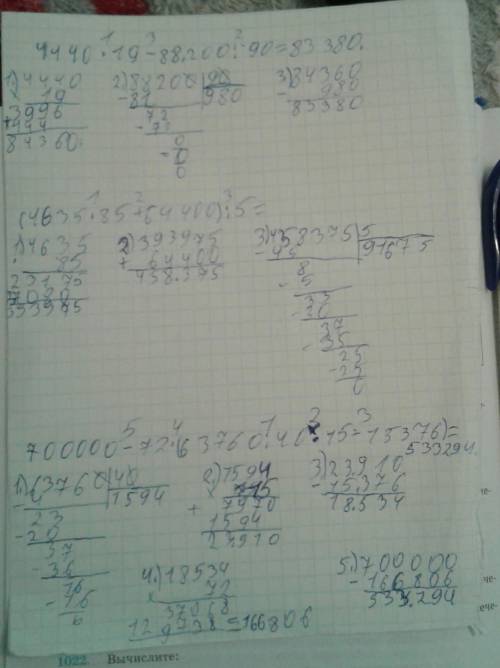 4440·19-88.200:90=83380.
1)4440
19
3996
+444
84360.
2)88200 90
-81 980
72
-72
0
-0
0
3)84360
- 980
83380
(4635·85+64400):5=
1)4635
85
23175
37080
393975
2)393975
+ 64400
458.375
3)458375 5
-45 91675
8
-5
33
-30
37
-35
25
-25
0
700000-72·(63760:40·15-15376)=
533294.
1)63760 40
1594
23
-20
37
-36
16
-16
0
2)1594
15
+ 7970
1594
23910
3)23910
-15.376
18.534
4.)18534
72
37068
129738 =166806
5.)700000
-166806
533.294
1022. Вычислите: